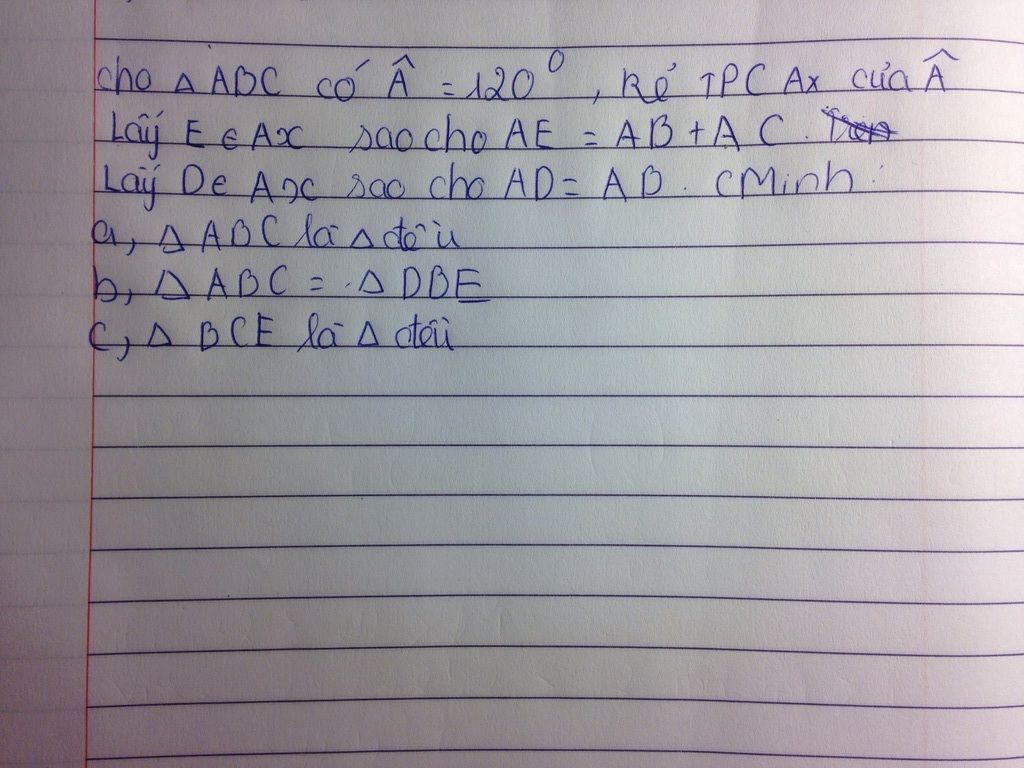 cho △ ABC có Â = 120⁰, Kẻ TPG Ax của Â
Lấy E ∈ Ax sao cho AE = AB + AC.
Lấy D ∈ Ax sao cho AD = AB. CMinh:
a, △ ABC là △ đều
b, △ ABC = △ DBE
c, △ BCE là △ đều